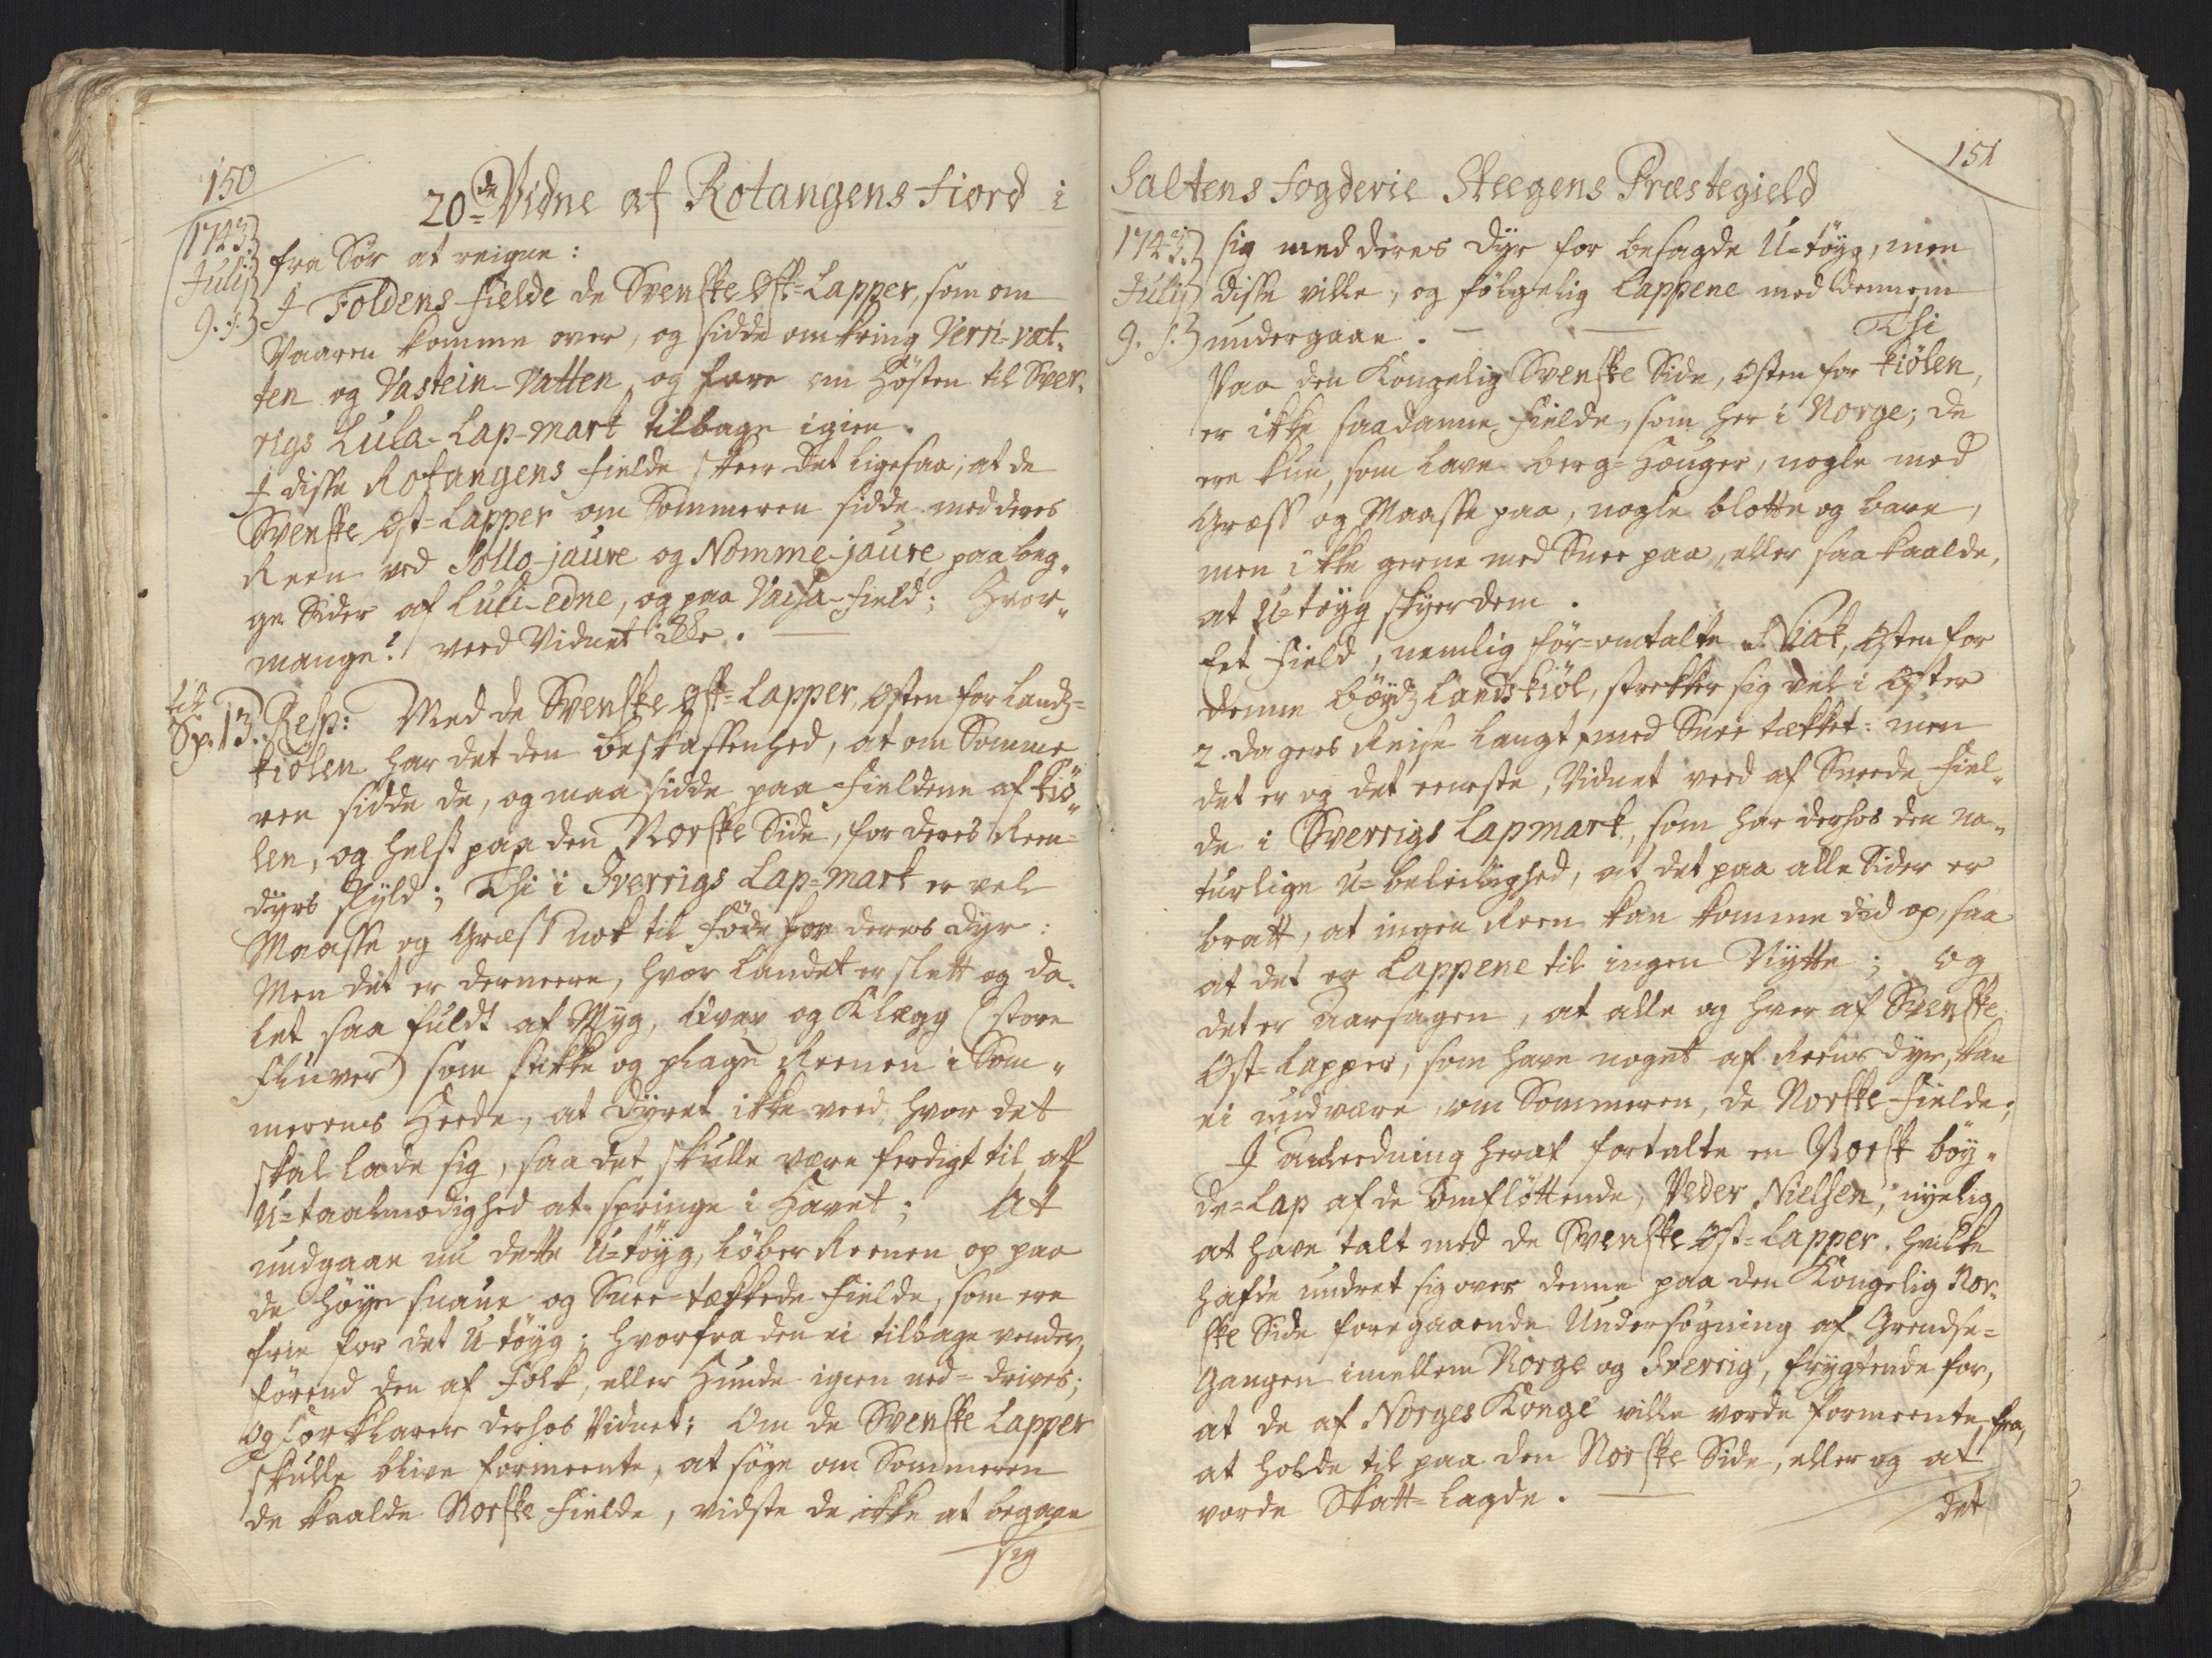 150
20de Vidne af Rotangens Fiord i
1743.
Julij
9. s.
fra Sör at reigne:
I Foldens Fielde de Svenske Öst-Lapper, som om
Vaaren komme over, og sidde omkring Verri-vat-
ten og Vastein-Vatten, og fare om Hösten til Sver-
rigs Lula-Lap-mark tilbage igien.
I disse Rotangens Fielde skeer det ligesaa, at de
Svenske Öst-Lapper om Sommeren sidde med deres
Reen ved Sollo-jaure og Nomme-jaure paa beg-
ge Sider af Luli-edne, og paa Vaisa-Field; Hvor-
mange? veed Vidnet ikke.
til
Sp. 13. Resp: Med de Svenske Öst-Lapper, Østen for Lands-
Kiölen har det den beskaffenhed, at om Somme
ren sidde de, og maa sidde paa Fieldene af Kiö-
len, og helst paa den Norske Side, for deres Reen-
dyrs skyld; Thi i Sverrigs Lap-mark er vel
Maasse og Græs nok til Föde for deres dyr:
Men det er derneere, hvor Landet er slett og da-
let saa fuldt af Myg, Knar og Klægg (store
fluver) som stikke og plage Reenen i Som-
merens Heede, at dyret ikke veed, hvor det
skal lade sig, saa det skulle være ferdigt til aff
U-taalmodighed at springe i Havet; At
undgaae nu dette U-töyg, löber Reenen op paa
de höye snaue og Snee-tækkede Fielde, som ere
frie for det U-töyg; hvorfra den ei tilbage vender,
förend den af Folk, eller Hunde igien ned-drives;
og Forklarer derhos Vidnet: Om de Svenske Lapper
skulle blive formeente, at söge om Sommeren
de kaalde Norske Fielde, vidste de ikke at begaae
sig
151
Saltens Fogderie Steegens Præstegield
1743.
Julij
9. s.
sig med deres Dyr for besagde U-töyg, men
disse ville, og fölgelig Lappene med dennem
undergaae.
Thi
Paa den Kongelig Svenske Side, östen for Kiölen,
er ikke saadanne Fielde, som her i Norge; de
ere kun, som lave berg-Houger, nogle med
Græss og Maasse paa, nogle blotte og bare,
men ikke gierne med Snee paa, eller saa kaalde,
at U-töyg skyer dem.
Eet Field, nemlig för-omtalte, Østen for
denne böyds Landskiöl, strekker sig vel i Öster
2. dagers Reise langt, med Snee tækket: men
det er og det eeneste, Vidnet veed af Sneede Fiel-
de i Sverrigs Lapmark, som har derhos den na-
turlige U-beleilighed, at det paa alle Sider er
bratt, at ingen Reen kan komme did op, saa
at det er Lappene til ingen Nytte; og
det er Aarsagen, at alle og hver af Svenske
Öst-Lapper, som have noget af Reens dyr, kan
ei undvære, om Sommeren, de Norske Fielde;
I anledning heraf fortalte en Norsk böy-
de-Lap af de omflöttende, Peder Nielsen, nyelig
at have talt med de Svenske Öst-Lapper, hvilke
hafde undret sig over denne paa den Kongelig Nor-
ske Side foregaaende Undersögning af Grendse-
Gangen imellem Norge og Sverrig, frygtende for,
at de af Norges Konge ville vorde formeente fra,
at holde til paa den Norske Side, eller og at
vorde Skatt-lagde.
det